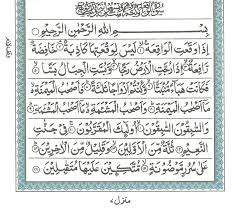 بِسْمِ اللهِ الرَّحْمٰنِ الرَّحِيْمِ
اِذَا وَقَعَتِ الْوَاقِعَةُ ۙ لَيْسَ لِوَقْعَتِهَا كَاذِبَةٌ ۘ خَافِضَةٌ
رَّافِعَةٌ ۙ اِذَا رُجَّتِ الْاَرْضُ رَجًّا ۙ وَّبُسَّتِ الْجِبَالُ بَسًّا ۙ
فَكَانَتْ هَبَآءً مُّنْۢبَثًّا ۙ وَّكُنْتُمْ اَزْوَاجًا ثَلٰثَةً ؕ فَاَصْحٰبُ الْمَيْمَنَةِ
مَاۤ اَصْحٰبُ الْمَيْمَنَةِ ؕ وَاَصْحٰبُ الْمَشْـَٔمَةِ مَاۤ اَصْحٰبُ الْمَشْـَٔمَةِ ؕ
وَالسّٰبِقُوْنَ السّٰبِقُوْنَ ۙ اُولٰٓئِكَ الْمُقَرَّبُوْنَ ۚ فِيْ جَنّٰتِ
النَّعِيْمِ ثُلَّةٌ مِّنَ الْاَوَّلِيْنَ ۙ وَقَلِيْلٌ مِّنَ الْاٰخِرِيْنَ ؕ
عَلٰى سُرُرٍ مَّوْضُوْنَةٍ ۙ مُّتَّكِـِٕيْنَ عَلَيْهَا مُتَقٰبِلِيْنَ
منزل ٧